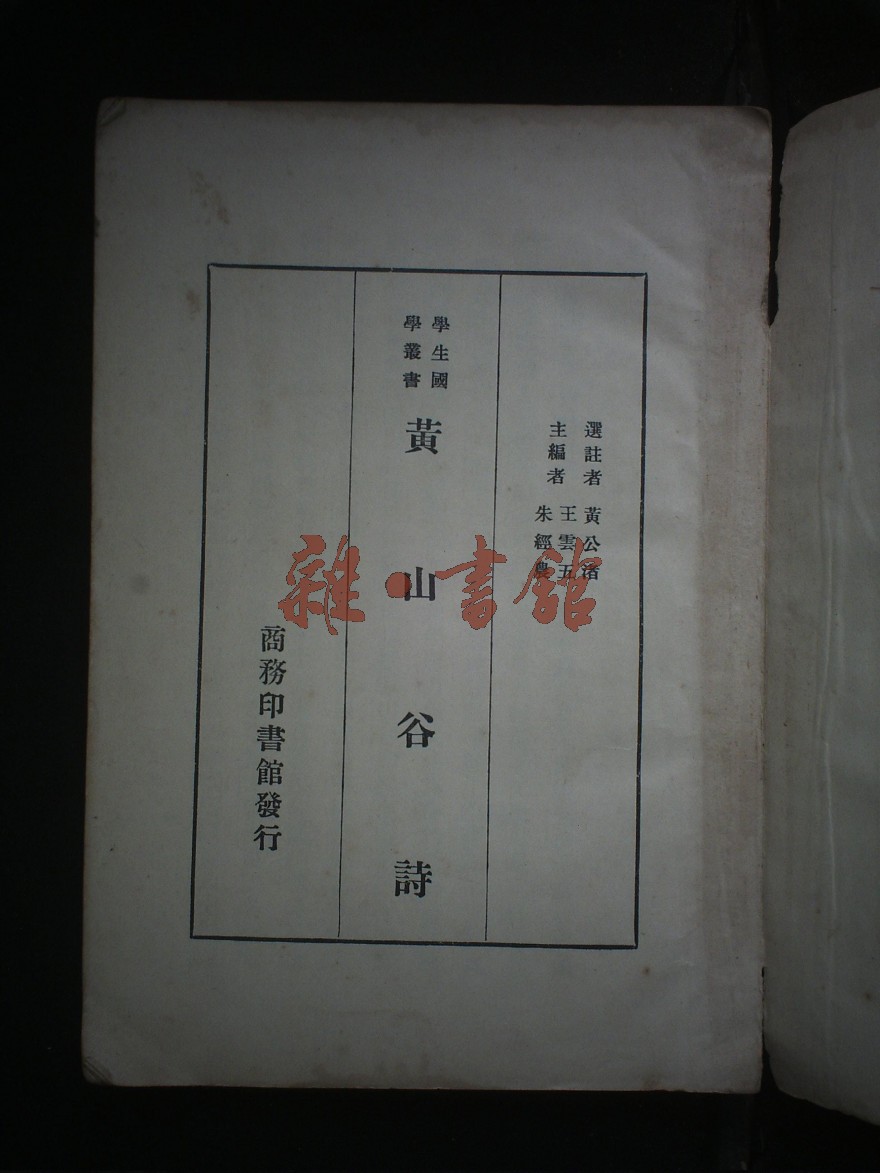 選註者 黃公渚
主編者 王雲五
朱經農
學生國
學叢書
黃山谷詩
商務印書館發行
雜·書館